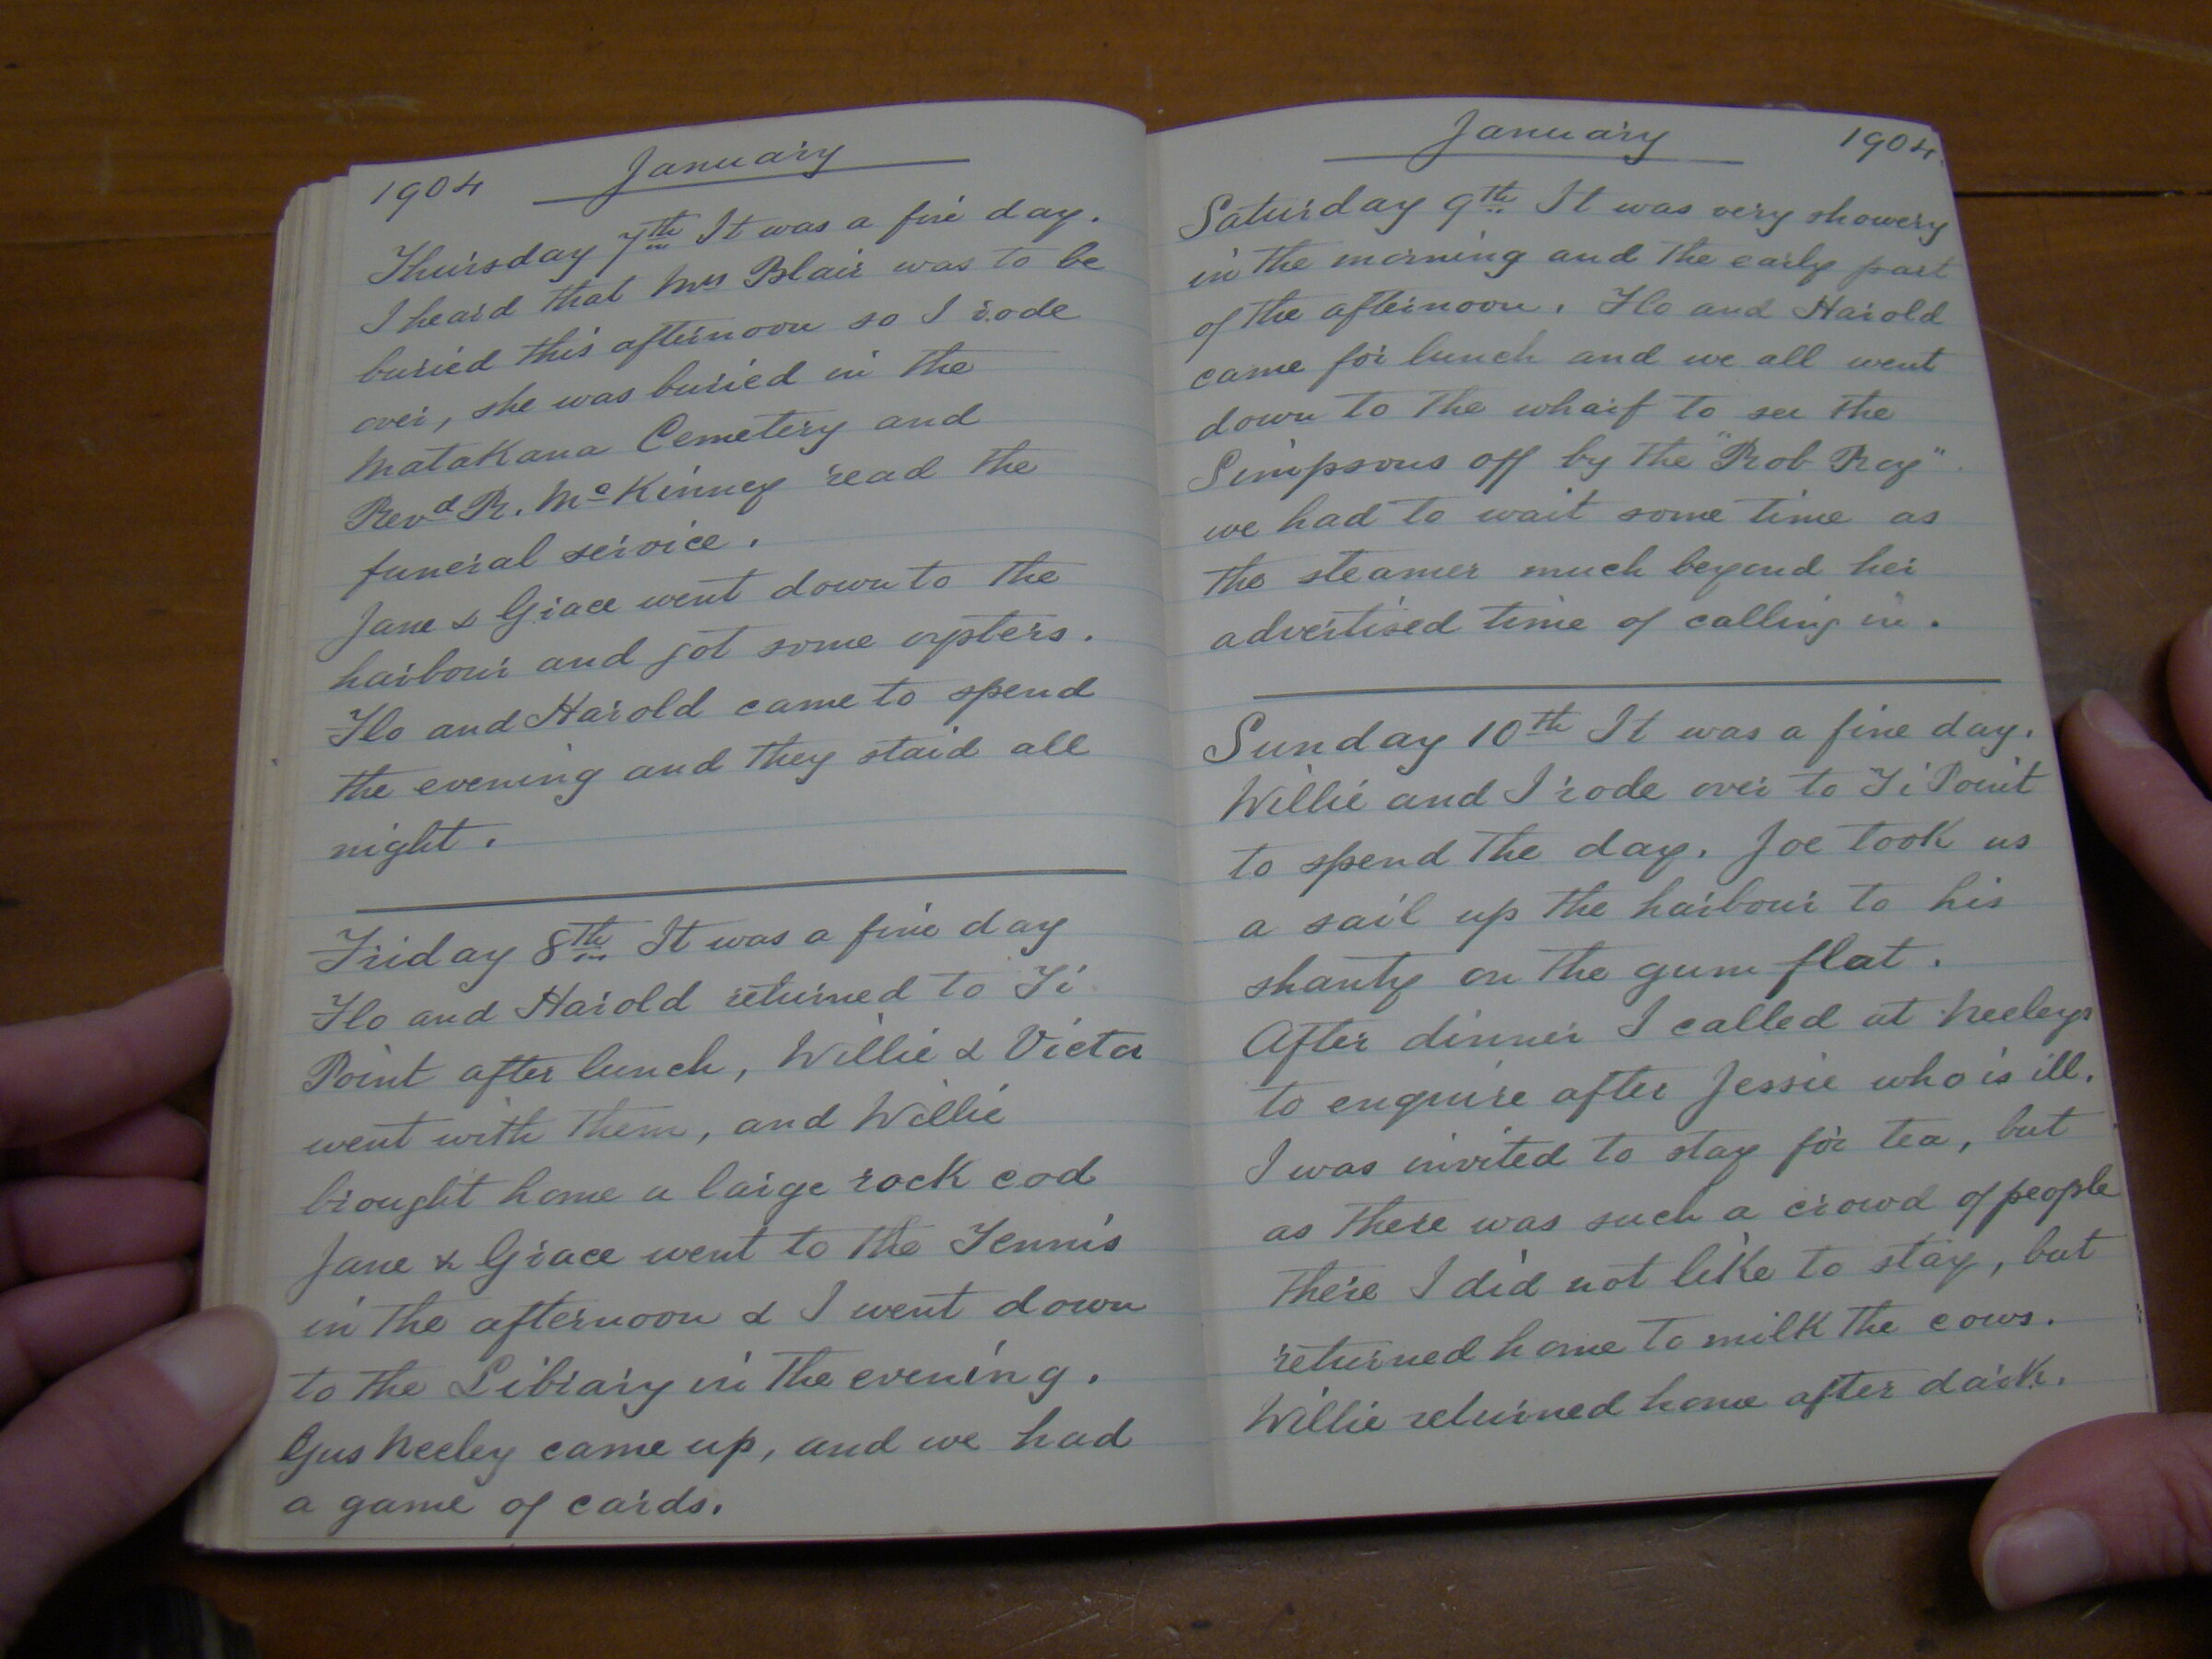 1904 January
Thursday 7th It was a fine day.
I heard that Mrs Blair was to be
buried this afternoon so I rode
over, she was buried in the
Matakana Cemetery and
Revd R. McKinney read the
funeral service.
Jane & Grace went down to the
harbour and got some oysters.
Flo and Harold came to spend
the evening and they staid all
night.
Friday 8th It was a fine day
Flo and Harold returned to Ti
Point after lunch, Willie & Victor
went with them, and Willie
brought home a large rock cod
Jane & Grace went to the Tennis
in the afternoon & I went down
to the Library in the evening.
Gus Neeley came up, and we had
a game of cards.
January 1904.
Saturday 9th It was very showery
in the morning and the early part
of the afternoon. Flo and Harold
came for lunch and we all went
down to the wharf to see the
Simpsons off by the "Rob Roy".
we had to wait some time as
the steamer much beyond her
advertised time of calling in.
Sunday 10th It was a fine day.
Willie and I rode over to Ti Point
to spend the day. Joe took us
a sail up the harbour to his
shanty on the gum flat.
After dinner I called at Neeleys
to enquire after Jessie who is ill.
I was invited to stay for tea, but
as there was such a crowd of people
there I did not like to stay, but
returned home to milk the cows.
Willie returned home after dark.